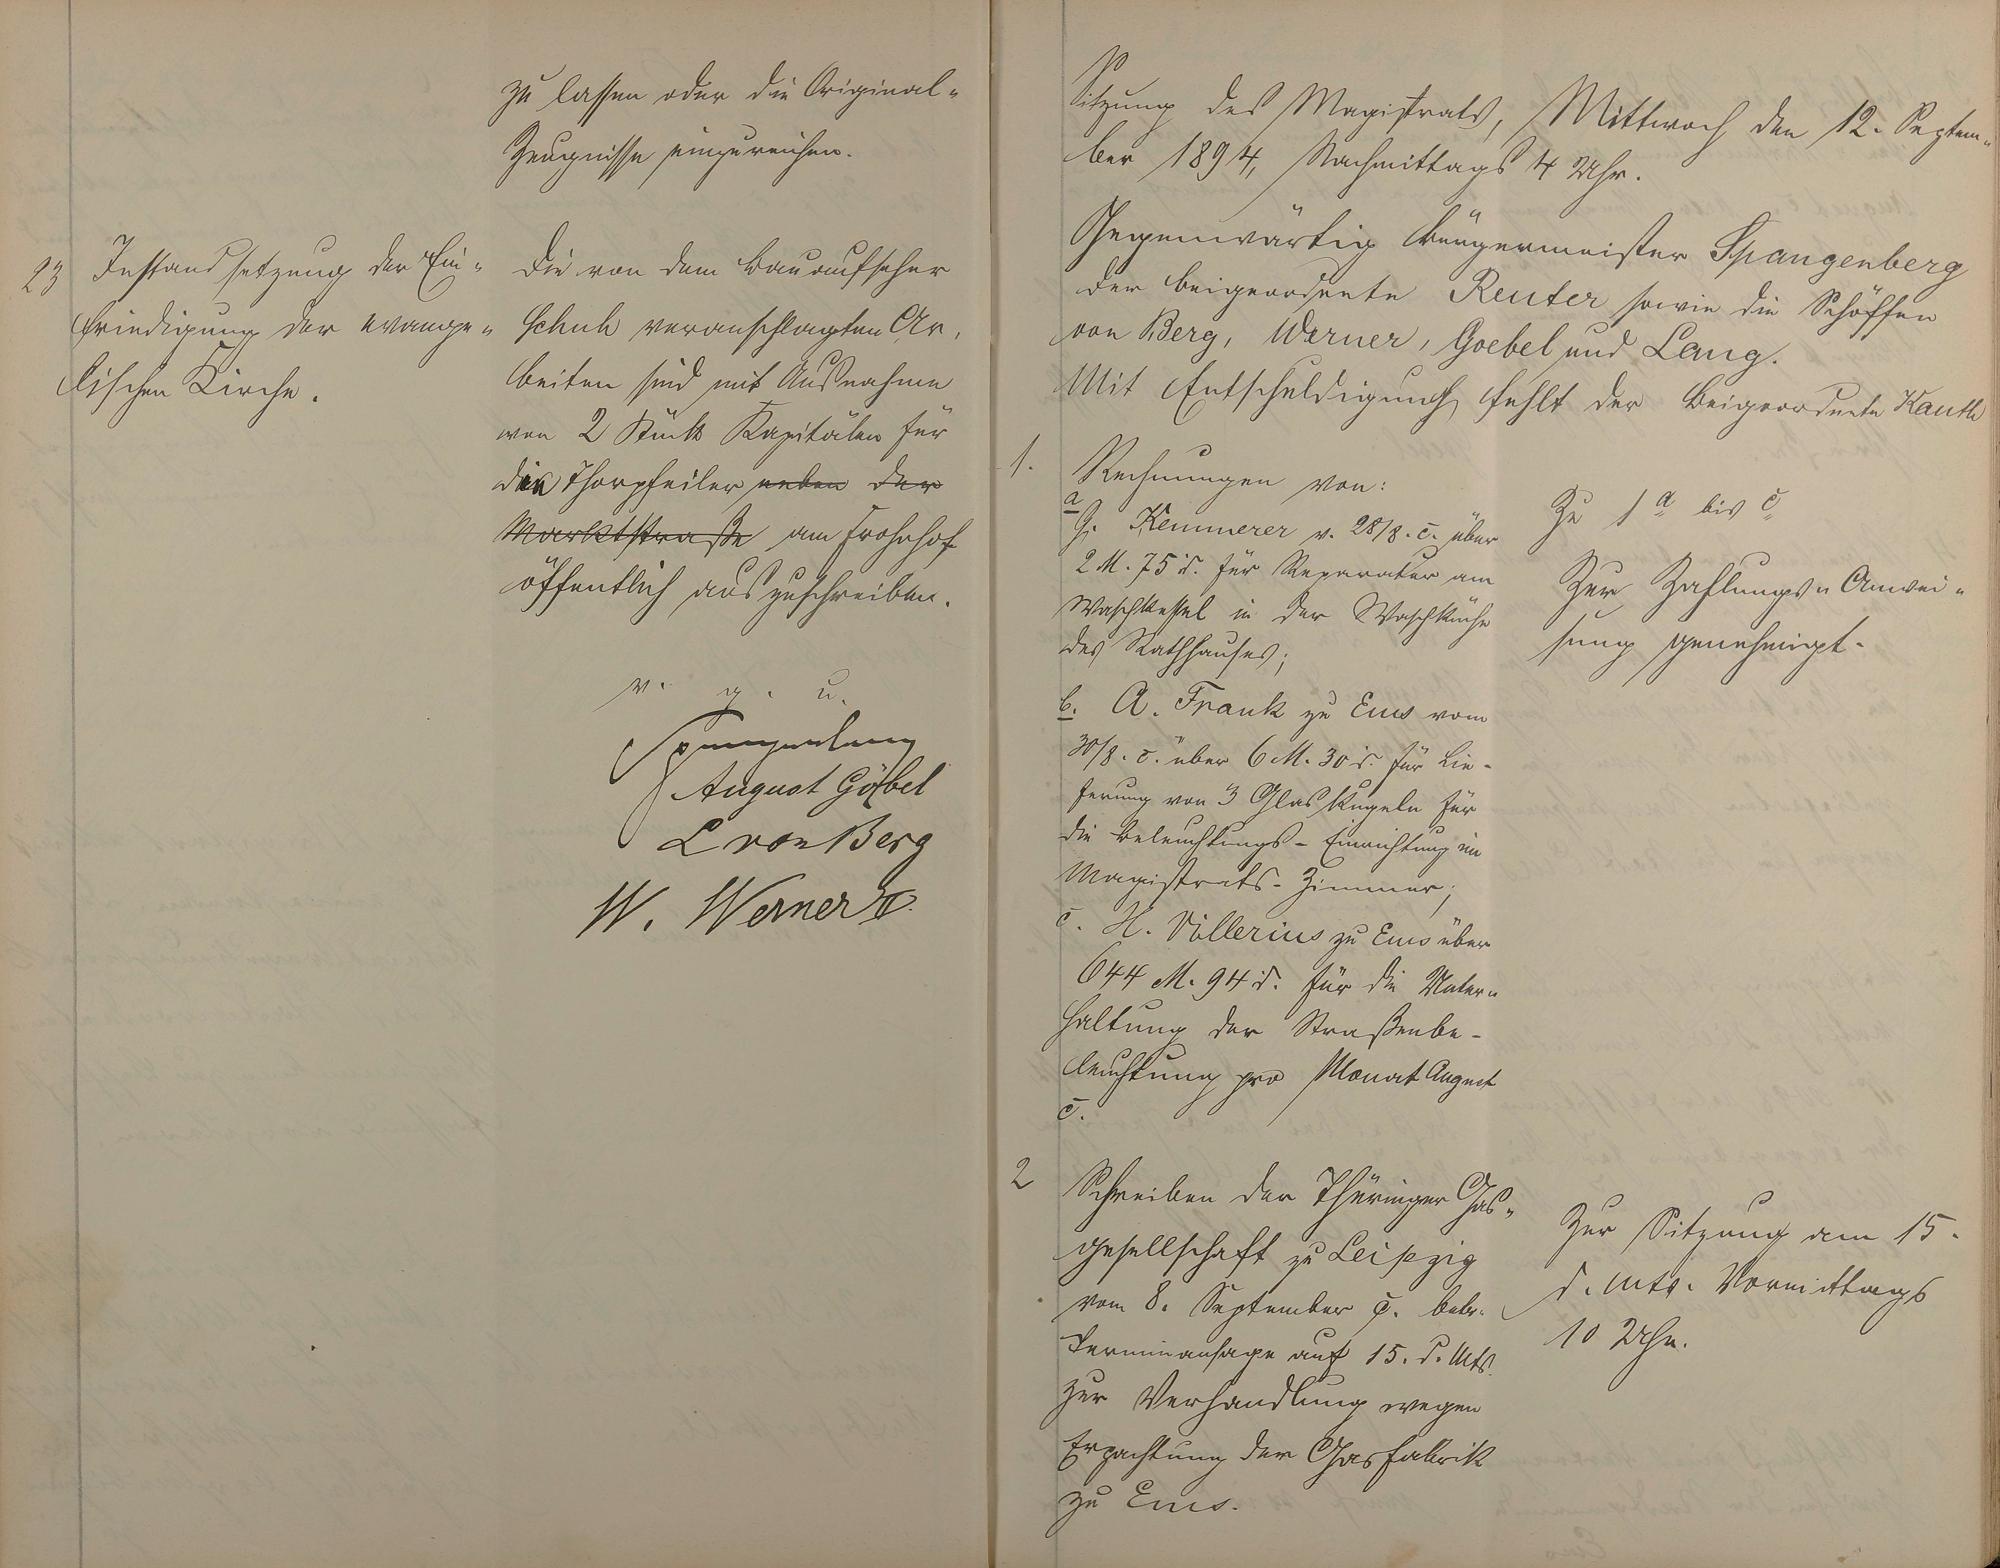 zu lassen oder die Original-
Zeugnisse einzureichen.
23 Instandsetzung der Ein-
friedigung der evange-
lischen Kirche.
Die von dem Bauaufseher
Schuh veranschlagten Ar-
beiten sind mit Ausnahme
von 2 Stück Kapitälen für
die Thorpfeiler neben der
Marktstraße am Frohnhof
öffentlich auszuschreiben.
v. g. u.
Spangenberg
August Göbel
L von Berg
W. Werner II.
Sitzung des Magistrats, Mittwoch den 12. Septem-
ber 1894, Nachmittags 4 Uhr.
Gegenwärtig Bürgermeister Spangenberg
der Beigeordnete Reuter sowie die Schöffen
von Berg, Werner, Goebel und Lang.
Mit Entschuldigung fehlt der Beigeordnete Kauth
1. Rechnungen von:
a G. Kemmerer v. 28/8. c. über
2 M. 75 d. für Reparatur am
Waschkessel in der Waschküche
des Rathhauses;
b. A. Frank zu Ems vom
30/8. c. über 6 M. 30 d. für Lie-
ferung von 3 Glaskugeln für
die Beleuchtungs-Einrichtung im
Magistrats-Zimmer;
c. H. Völlerius zu Ems über
644 M. 94 d. für die Unter-
haltung der Straßenbe-
leuchtung pro Monat August
c.
Zu 1 a bis c
Zur Zahlungs-Anwei-
sung genehmigt.
2 Schreiben der Thüringer Gas-
gesellschaft zu Leipzig
vom 8. September c. betr.
Terminansage auf 15. d. Mts.
zur Verhandlung wegen
Erpachtung der Gasfabrik
zu Ems.
Zur Sitzung am 15.
d. Mts. Vormittags
10 Uhr.